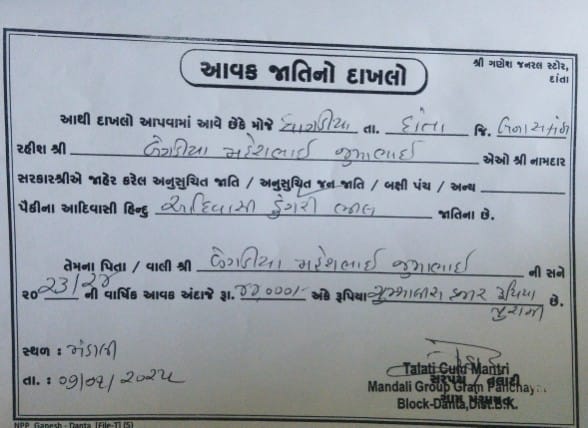 શ્રી ગણેશ જનરલ સ્ટોર,
દાંતા
આવક જાતિનો દાખલો
આથી દાખલો આપવામાં આવે છેકે મોજે તા. દાંતા જિ. બનાસકાંઠા
રહીશ શ્રી મહેશભાઈ જુમાભાઈ એઓ શ્રી નામદાર
સરકારશ્રીએ જાહેર કરેલ અનુસુચિત જાતિ / અનુસુચિત જન જાતિ / બક્ષી પંચ / અન્ય
પૈકીના આદિવાસી હિન્દુ આદિવાસી ડુંગરી ભીલ જાતિના છે.
તેમના પિતા / વાલી શ્રી મહેશભાઈ જુમાભાઈ ની સને
૨૦ 23/24 ની વાર્ષિક આવક અંદાજે રૂા. અંકે રૂપિયા હજાર રૂપિયા
પુરા છે.
સ્થળ : મંડાલી
તા. :
Talati Cum Mantri
સરપંચ / તલાટી
Mandali Group Gram Panchayat
Block-Danta,Dist.B.K.
NPP Ganesh - Danta (File-T) (5)